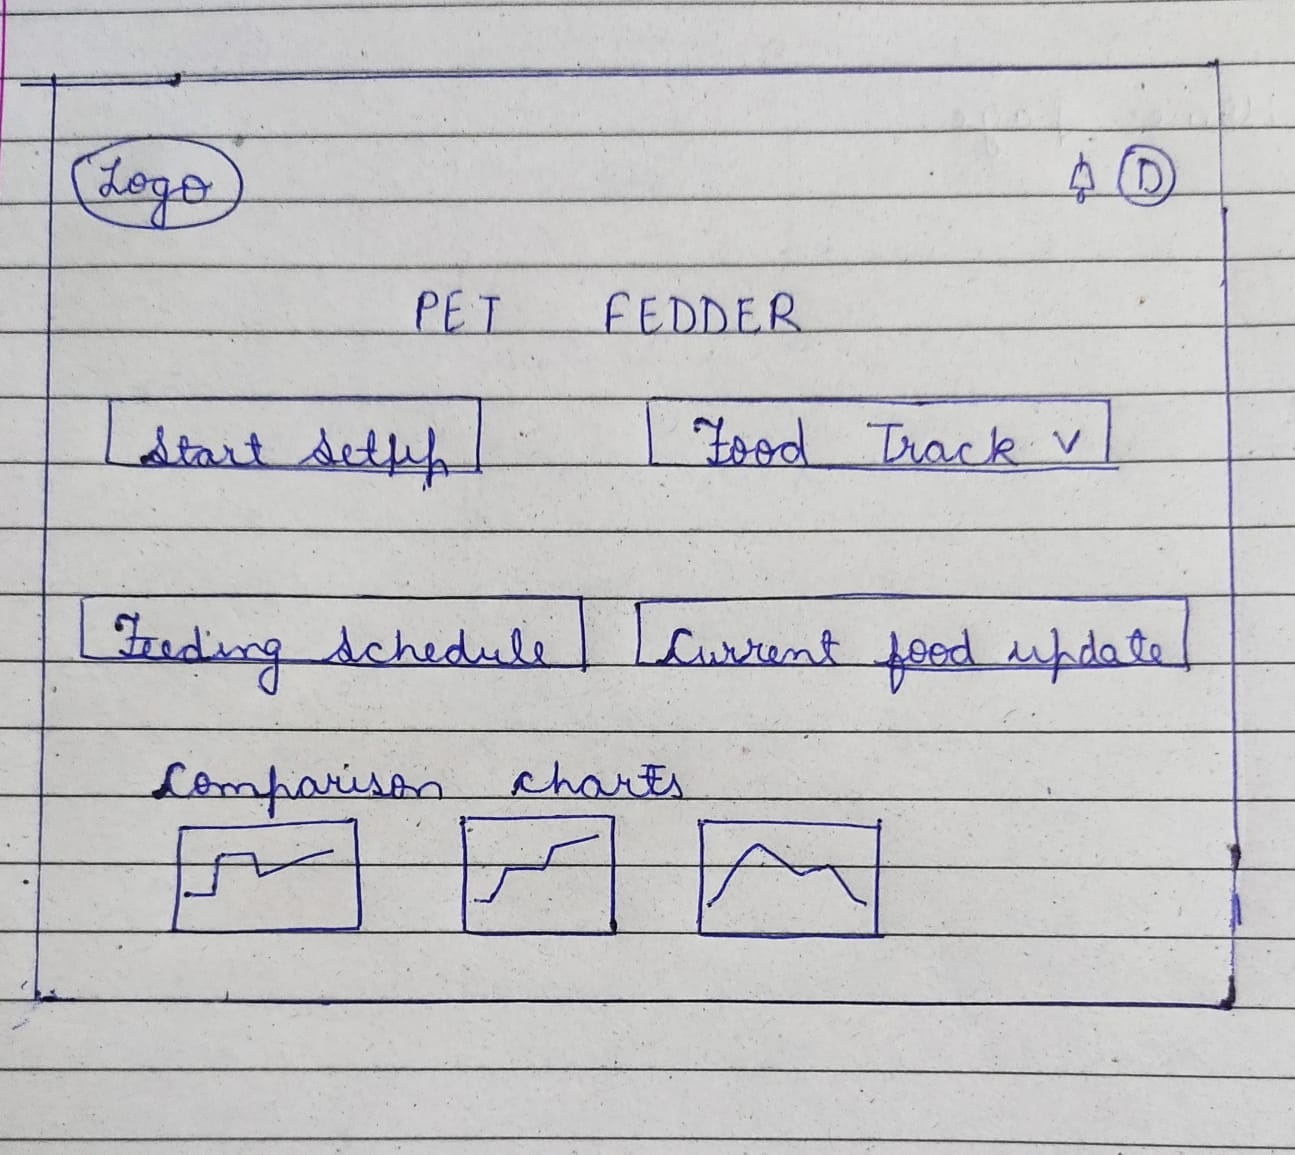 Logo
D
PET FEDDER
Start Setup
Food Track v
Feeding Schedule
Current food update
Comparison charts